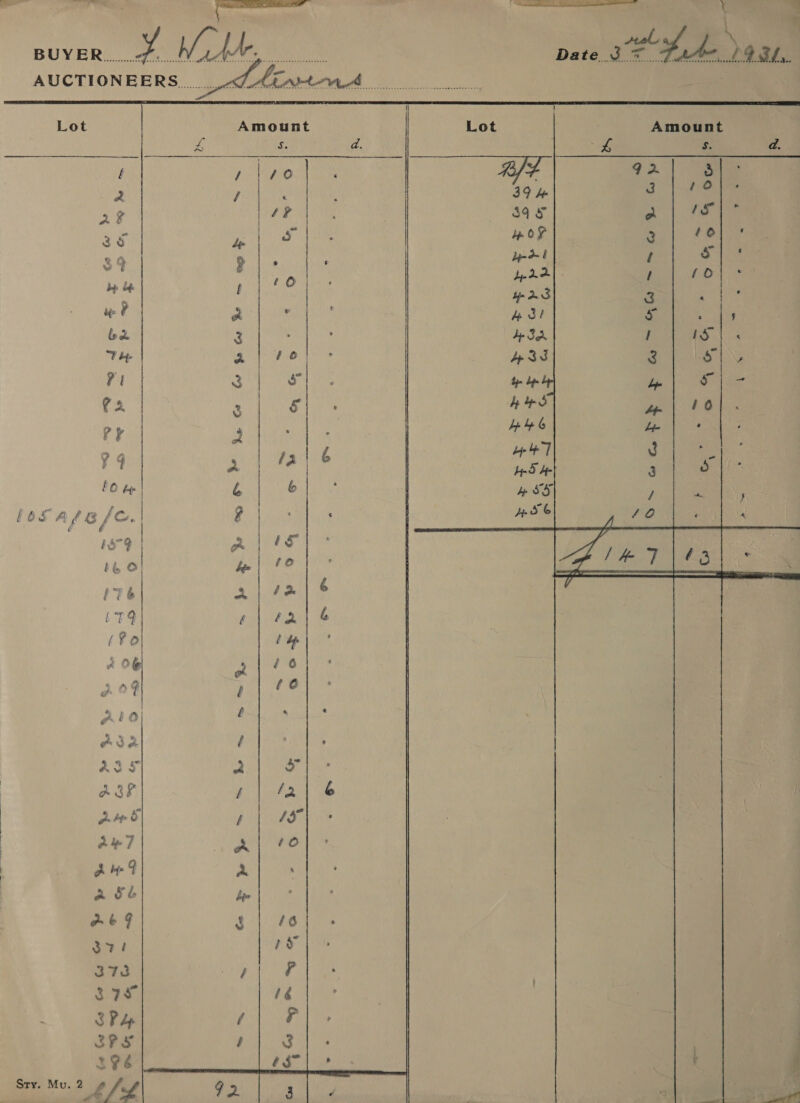 BUYER F. Webb. Date 3rd Feb 1931.
AUCTIONEERS Stevens
Lot Amount
£ s. d.
1 1 10 .
2 1 . .
28 18 .
35 4 5 .
39 8 . .
44 1 10 .
48 2 . .
62 3 . .
74 2 10 .
81 3 5 .
82 3 5 .
88 2 . .
89 2 12 6
104 6 6 .
105A/B/C. 8 . .
159 2 15 .
160 4 10 .
176 2 12 6
179 1 12 6
180 14 .
206 2 10 .
209 1 10 .
210 1 . .
232 1 . .
235 2 5 .
238 1 12 6
245 1 15 .
247 2 10 .
249 2 . .
256 4 . .
269 3 10 .
371 15 .
373 1 8 .
375 16 .
384 1 8 .
385 1 3 .
396 15 .
Sty. Mu. 2 C/F 92 3 .
Lot Amount
£ s. d.
B/F 92 3 .
394 3 10 .
395 2 15 .
408 3 10 .
421 1 5 .
422 1 10 .
423 3 . .
431 5 . .
432 1 15 .
433 3 5 .
444 4 5 .
445 4 10 .
446 4 . .
447 3 . .
454 3 5 .
455 1 . .
456 10 . .
£147 13 .